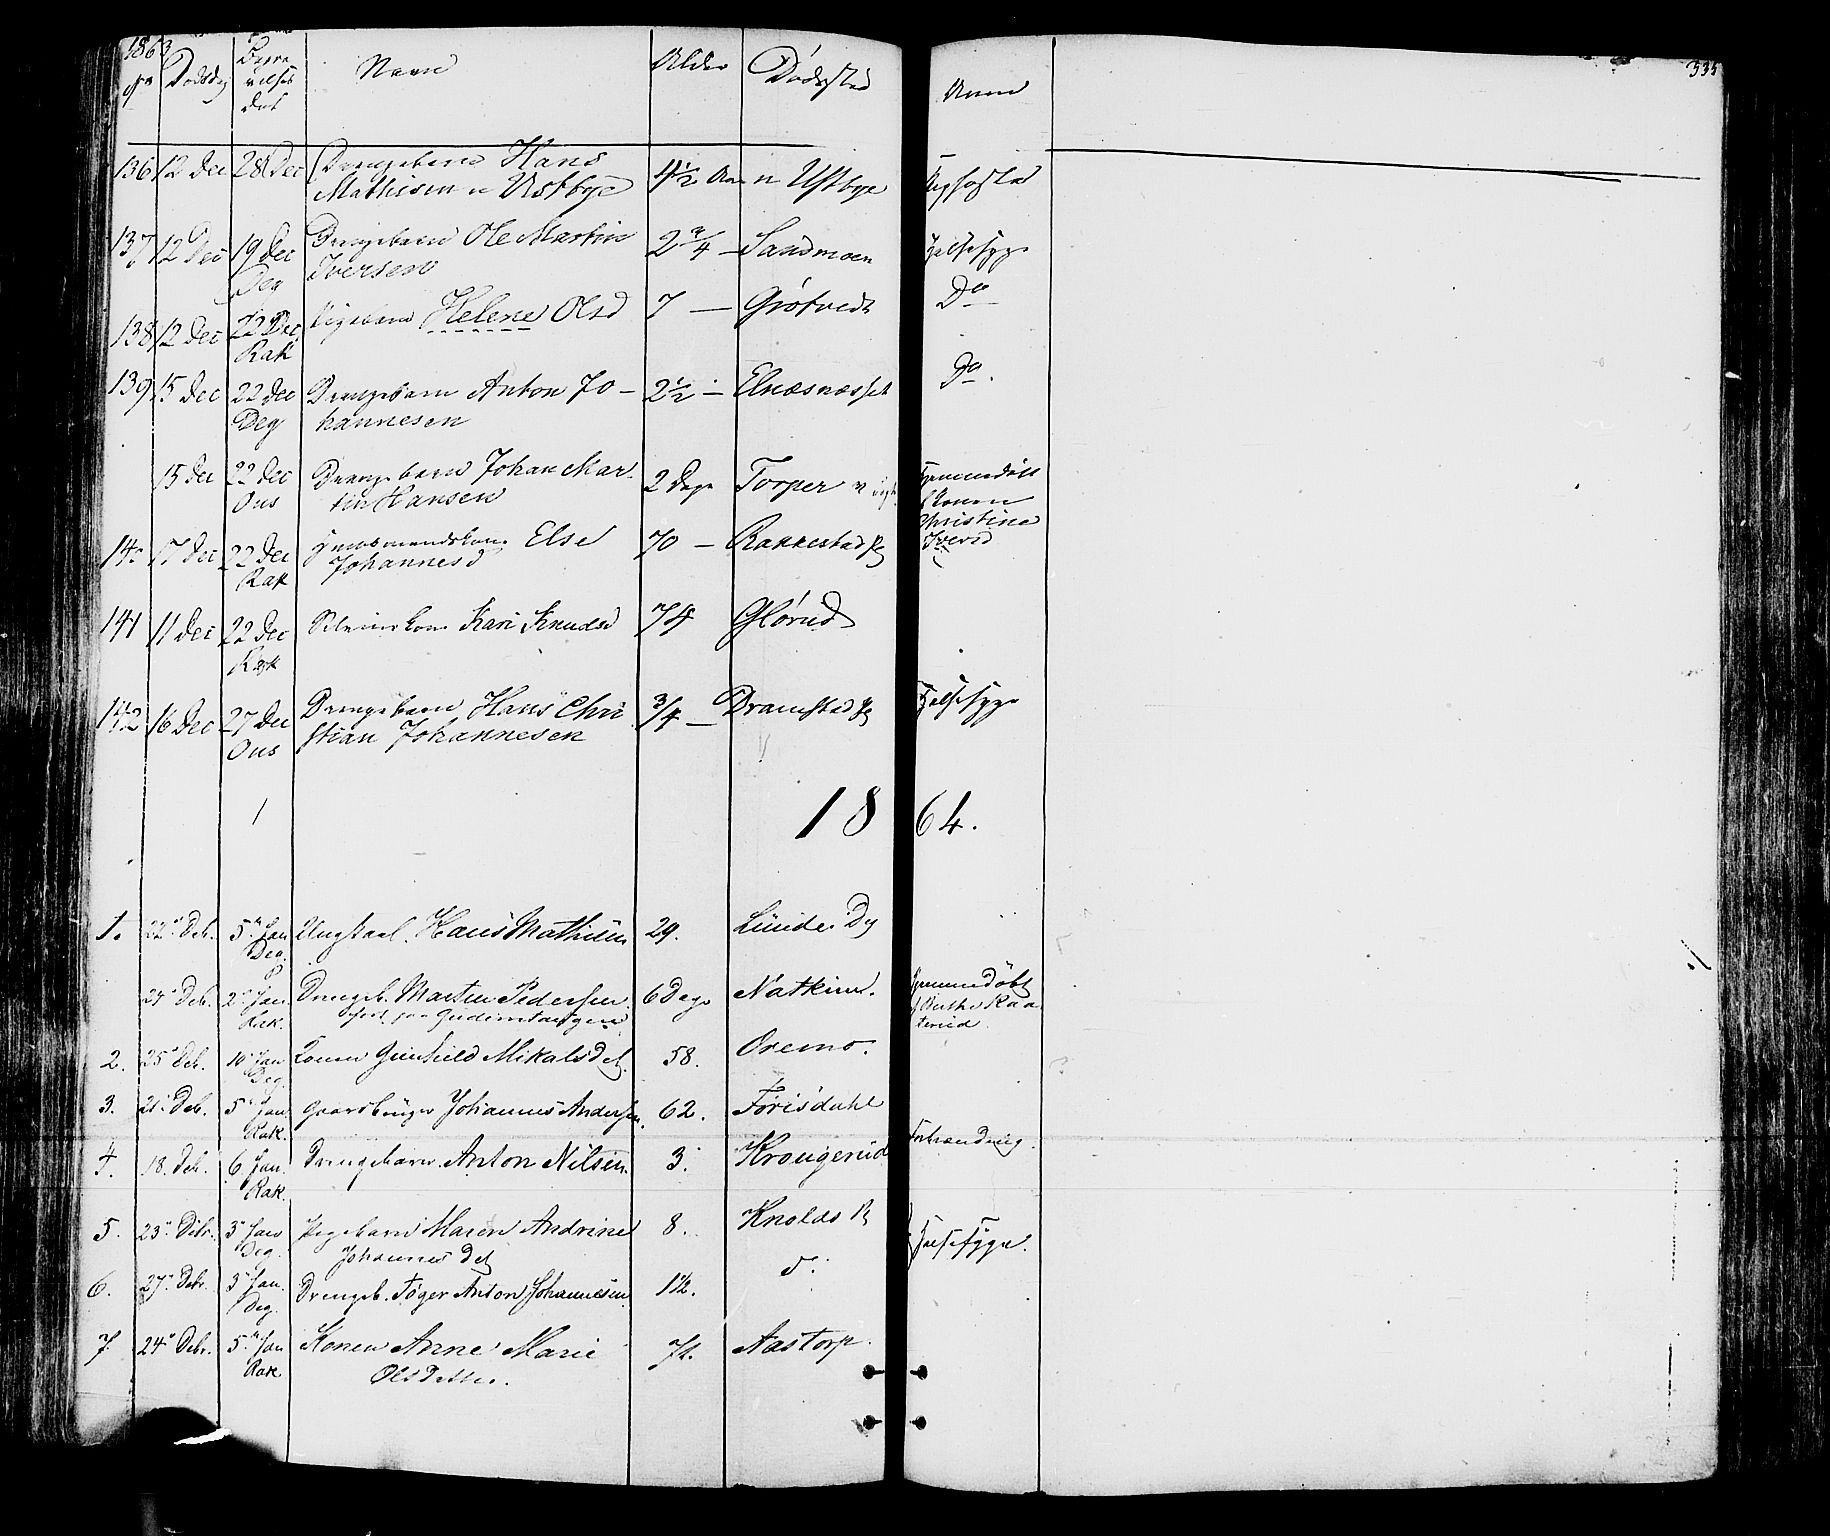 1863
No Dødsdag Begravelses dat Navn Alder Dødssted Anm 335
136 12 Dec 28 Dec Drengebarn Hans 4½ Aar n Ustbye
Mathisen n Ustbye
137 12 Dec 19 Dec Drengebarn Ole Martin 2 3/4 — Sandmoen Halssyge
Deg Iversen
138 12 Dec 22 Dec Pigebarn Helene Olsd 7 — Gjøtvedt Do
Rak
139 15 Dec 22 Dec Drengebarn Anton Jo- 2½ — Elnæsnæsset Do.
Deg hannesen
15 Dec 22 Dec Drengebarn Johan Mar- 2 Dage Torper Hjemmedøbt
Ous tin Hansen af Konen
Christine
140 17 Dec 22 Dec Huusmandskone Else 70 — Rakkestad Pg Iversd
Rak Johannesd
141 11 Dec 22 Dec Kari Knudsd 74 Glørud
Rak
142 16 Dec 27 Dec Drengebarn Hans Chri 3/4 — Dramstad Pg Halssyge
Ous stian Johannesen
1864.
1. 22 Deb. 5 Jan Ungkarl. Hans Mathisen 29. Lünde. Dg
Deg.
24 Deb. 2 Jan Drengeb. Martin Pedersen 6 Dage Natkim. Hjemmedøbt
Rak. født paa Gudimtangen af Berthe Kaa
terud.
2. 25 Deb. 10 Jan Konen Gunhild Mikalsdet. 58. Oremo.
Deg.
3. 21 Deb. 5 Jan Gaardbruger Johannes Andersen. 62. Førisdahl
Rak.
4. 18. Deb. 6 Jan. Drengebarn. Anton Nilsen. 3. Krougerud
Rak.
5. 23 Debr. 3 Jan Pigebarn Maren Andrine 8. Knolds Pl Halssyge.
Deg. Johannesdet
6. 27 Debr. 3 Jan. Drengeb. Tøger Anton Johannesen. 1½. d.
Deg.
7. 24 Debr. 5 Jan Konen Anne Marie 74. Aastorp.
Rak Olsdatter.